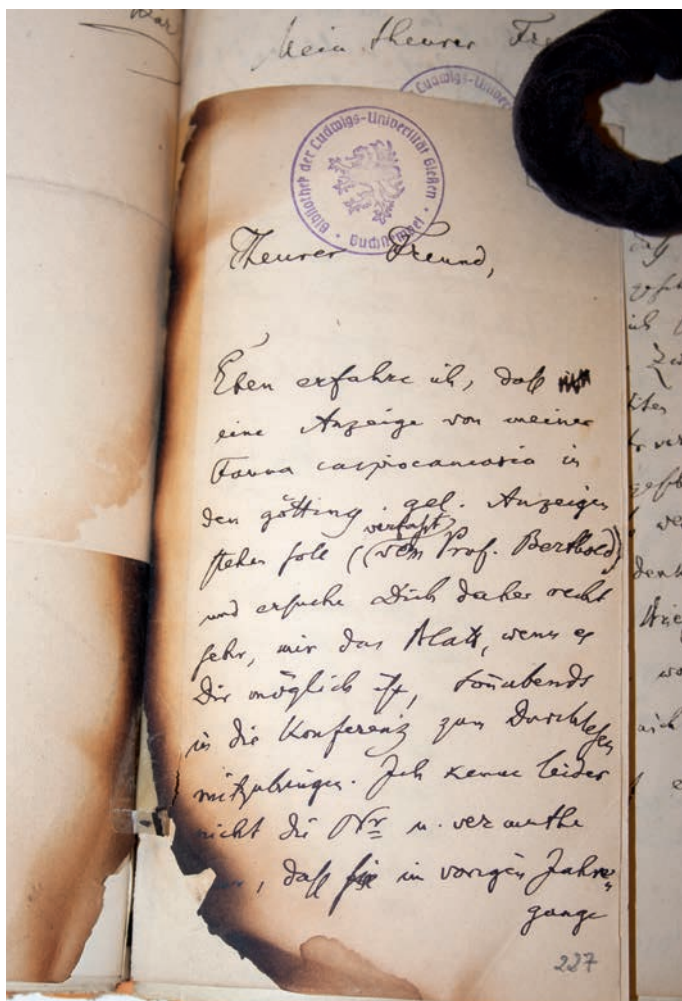 Mein theurer Fre
Bibliothek der Ludwigs-Universität Gießen
Buchstempel
Ludwigs-Univer
Theurer Freund,
Eben erfahre ich, daß
eine Anzeige von meiner
Fauna caspiocaucasia in
den götting. gel. Anzeigen
stehen soll (verfaßt vom Prof. Berthold)
und ersuche Dich daher recht
sehr, mir das Blatt, wenn es
Dir möglich ist, Soñabends
in die Konferenz zum Durchlesen
mitzubringen. Ich kenne leider
nicht die Nr u. vermuthe
, daß sie in vorigen Jahr-
gange
227